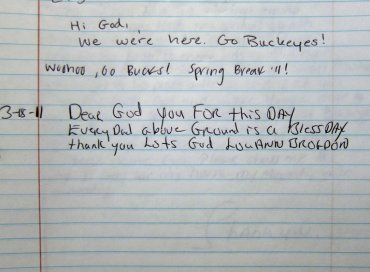 Hi God,
We were here. Go Buckeyes!
Woohoo, Go Bucks! Spring Break '11!
3-18-11 Dear God you FOR this DAY
Every Dad above Ground is a Bless DAY
thank you Lots God LouANN BROGDON